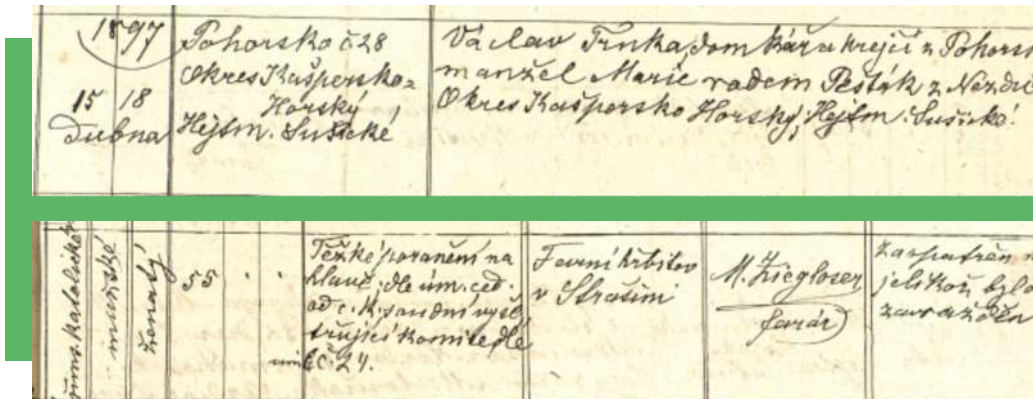 1897
15 18
Dubna
Pohorsko č 28
Okres Kašpersko-
Horský
Hejtm. Sušické
Václav Trnka, domkář a krejčí z Pohors
manžel Marie rodem Pešták z Nezdic
Okres Kašpersko Horský, Hejtm: Sušické.
římskokatolické
mužské
ženatý
55
Težké poranění na
hlavě, dle úm. ced.
od c. k. soudní vyše-
třující komise dle
č 24.
Farní hřbitov
v Strašíni
M. Ziegloser
farář
Zaopatřen n
jelikož bylo
zavražděn